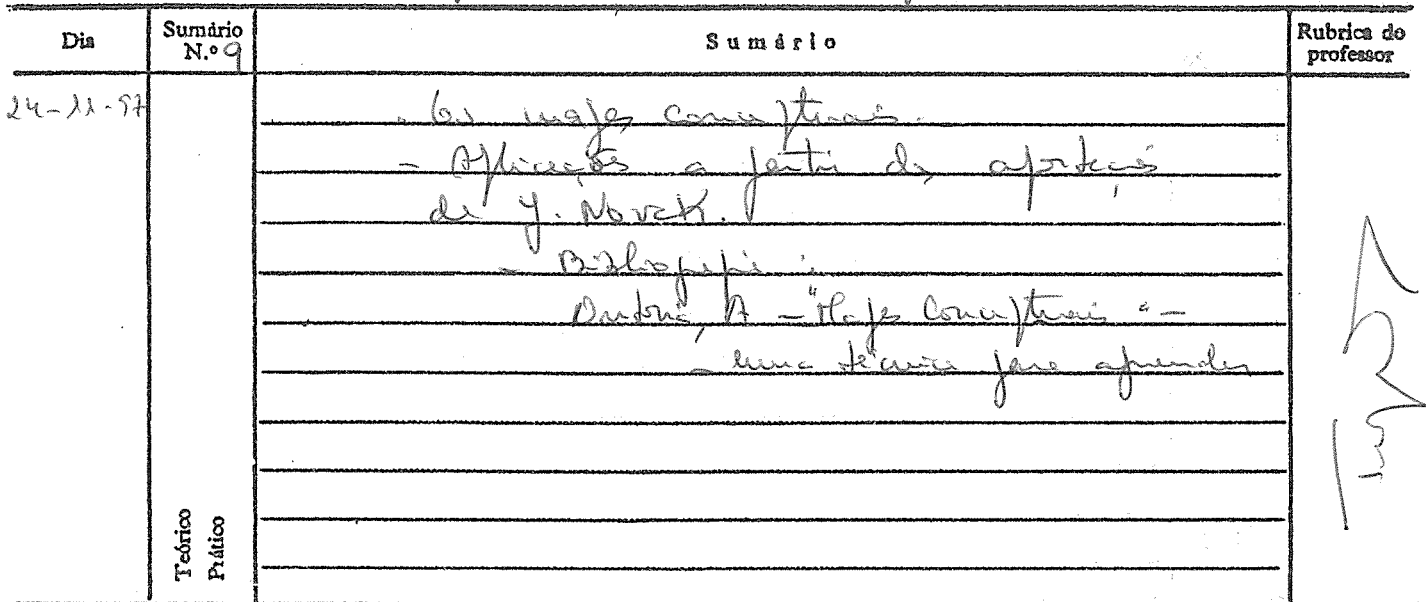 Dia
Sumário N.º 9
Sumário
Rubrica do professor
24-11-97
- Os mapas conceptuais.
- Aplicações a partir da
de J. Novak.
- Bibliografia :
Ontoria, A - "Mapas Conceptuais" -
- uma técnica para aprender
Teórico
Prático